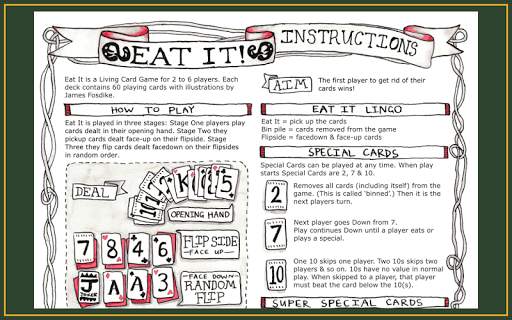 EAT IT!
INSTRUCTIONS
Eat It is a Living Card Game for 2 to 6 players. Each
deck contains 60 playing cards with illustrations by
James Fosdike.
HOW TO PLAY
Eat It is played in three stages: Stage One players play
cards dealt in their opening hand. Stage Two they
pickup cards dealt face-up on their flipside. Stage
Three they flip cards dealt facedown on their flipsides
in random order.
DEAL
K 5
OPENING HAND
7 8 4 6
FLIP SIDE
FACE UP
J A A 3
JOKER
FACE DOWN
RANDOM
FLIP
AIM
The first player to get rid of their
cards wins!
EAT IT LINGO
Eat It = pick up the cards
Bin pile = cards removed from the game
Flipside = facedown & face-up cards
SPECIAL CARDS
Special Cards can be played at any time. When play
starts Special Cards are 2, 7 & 10.
2
Removes all cards (including itself) from the
game. (This is called 'binned'.) Then it is the
next players turn.
7
Next player goes Down from 7.
Play continues Down until a player eats or
plays a special.
10
One 10 skips one player. Two 10s skips two
players & so on. 10s have no value in normal
play. When skipped to a player, that player
must beat the card below the 10(s).
SUPER SPECIAL CARDS